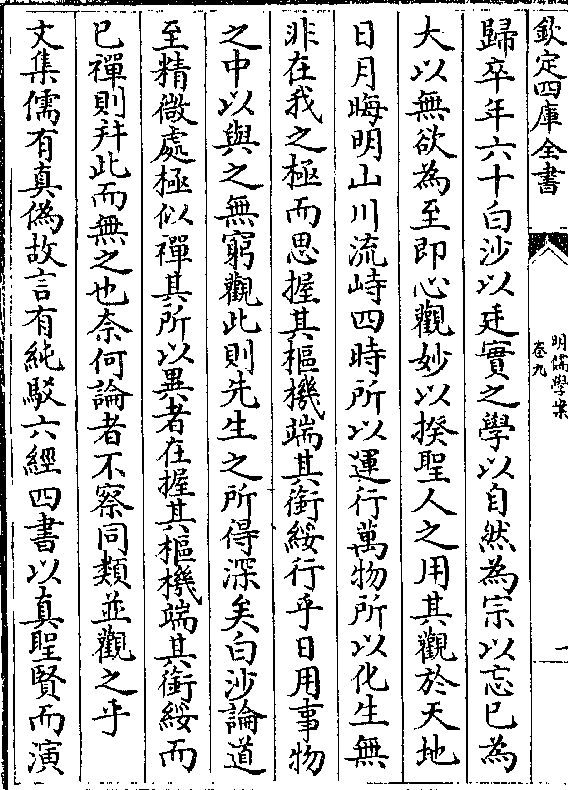 欽定四庫全書
明儒學案
卷九
歸卒年六十白沙以廷實之學以自然為宗以忘己為
大以無欲為至即心觀妙以揆聖人之用其觀於天地
日月晦明山川流峙四時所以運行萬物所以化生無
非在我之極而思握其樞機端其銜綏行乎日用事物
之中以與之無窮觀此則先生之所得深矣白沙論道
至精微處極似禪其所以異者在握其樞機端其銜綏而
已禪則并此而無之也奈何論者不察同類並觀之乎
文集儒有真偽故言有純駁六經四書以真聖賢而演